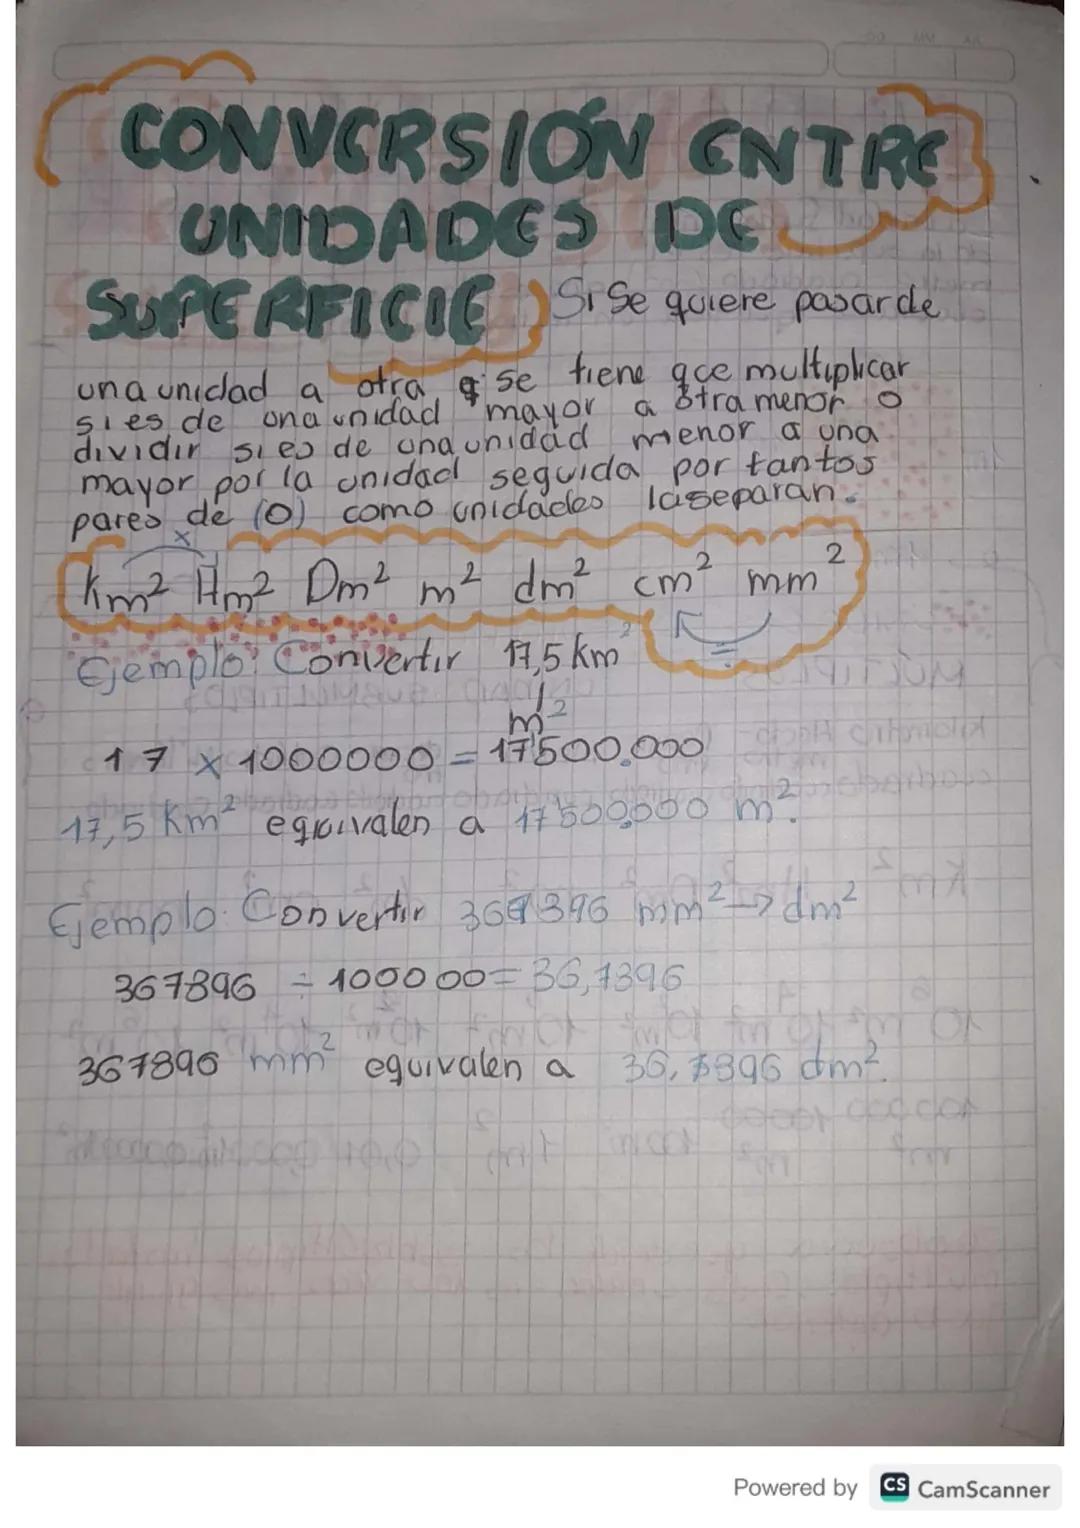 CONVERSIÓN ENTRE
UNIDADES DE
SUPERFICIE Si Se quiere pasar de
una unidad a otra q se tiene que multiplicar
si es de una unidad mayor a otra menor o
dividir si es de una unidad menor a una
mayor por la unidad seguida por tantos
pares de (0) como unidades laseparan.
x
Km² Hm² Dm² m² dm² cm² mm²
÷
Ejemplo: Convertir 17,5 km²
↓
m²
17 x 1000000 = 17'500.000
17,5 Km² equivalen a 17'500.000 m².
Ejemplo: Convertir 367396 mm² → dm²
367896 ÷ 10000 = 36,7396
367896 mm² equivalen a 36,7396 dm².
Powered by CS CamScanner